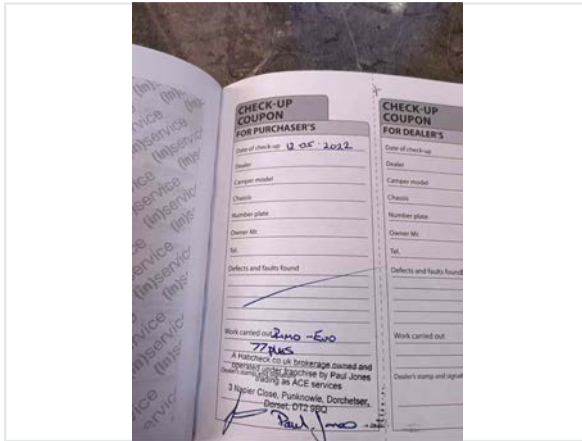 (in)service
CHECK-UP
COUPON
FOR PURCHASER'S
Date of check-up 12 05 · 2022
Dealer
Camper model
Chassis
Number plate
Owner Mr.
Tel.
Defects and faults found
Work carried out Rimo - Evo
77 plus
A Habcheck co uk brokerage owned and
operated under franchise by Paul Jones
trading as ACE services
3 Napier Close, Punknowle, Dorchetser,
Dorset, DT2 9BQ
Paul Jones
CHECK-UP
COUPON
FOR DEALER'S
Date of check-up
Dealer
Camper model
Chassis
Number plate
Owner Mr.
Tel.
Defects and faults found
Work carried out
Dealer's stamp and